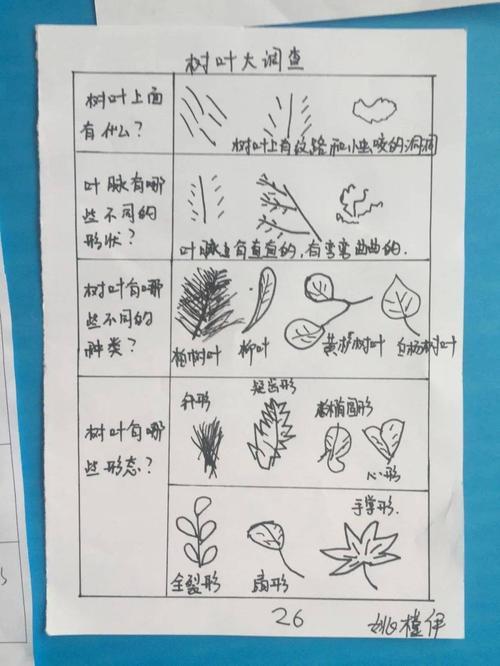 树叶大调查
树叶上面
有什么?
树叶上有纹路和小虫咬的洞洞
叶脉有哪
些不同的
形状?
叶脉上有直直的,有弯弯曲曲的.
树叶有哪
些不同的
种类?
柏树叶
柳叶
黄杨树叶
白杨树叶
树叶有哪
些形态?
针形
锯齿形
椭圆形
心形
全裂形
扇形
手掌形.
26